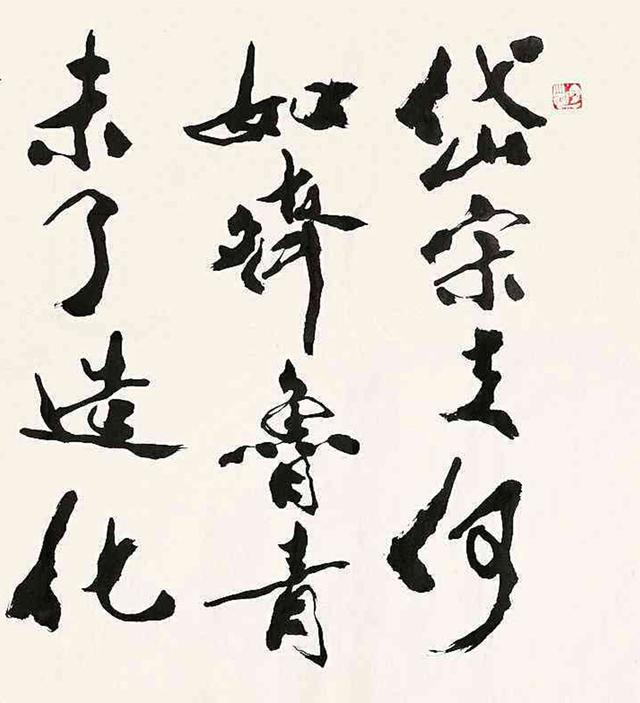 岱宗夫何
如齊魯青
未了造化